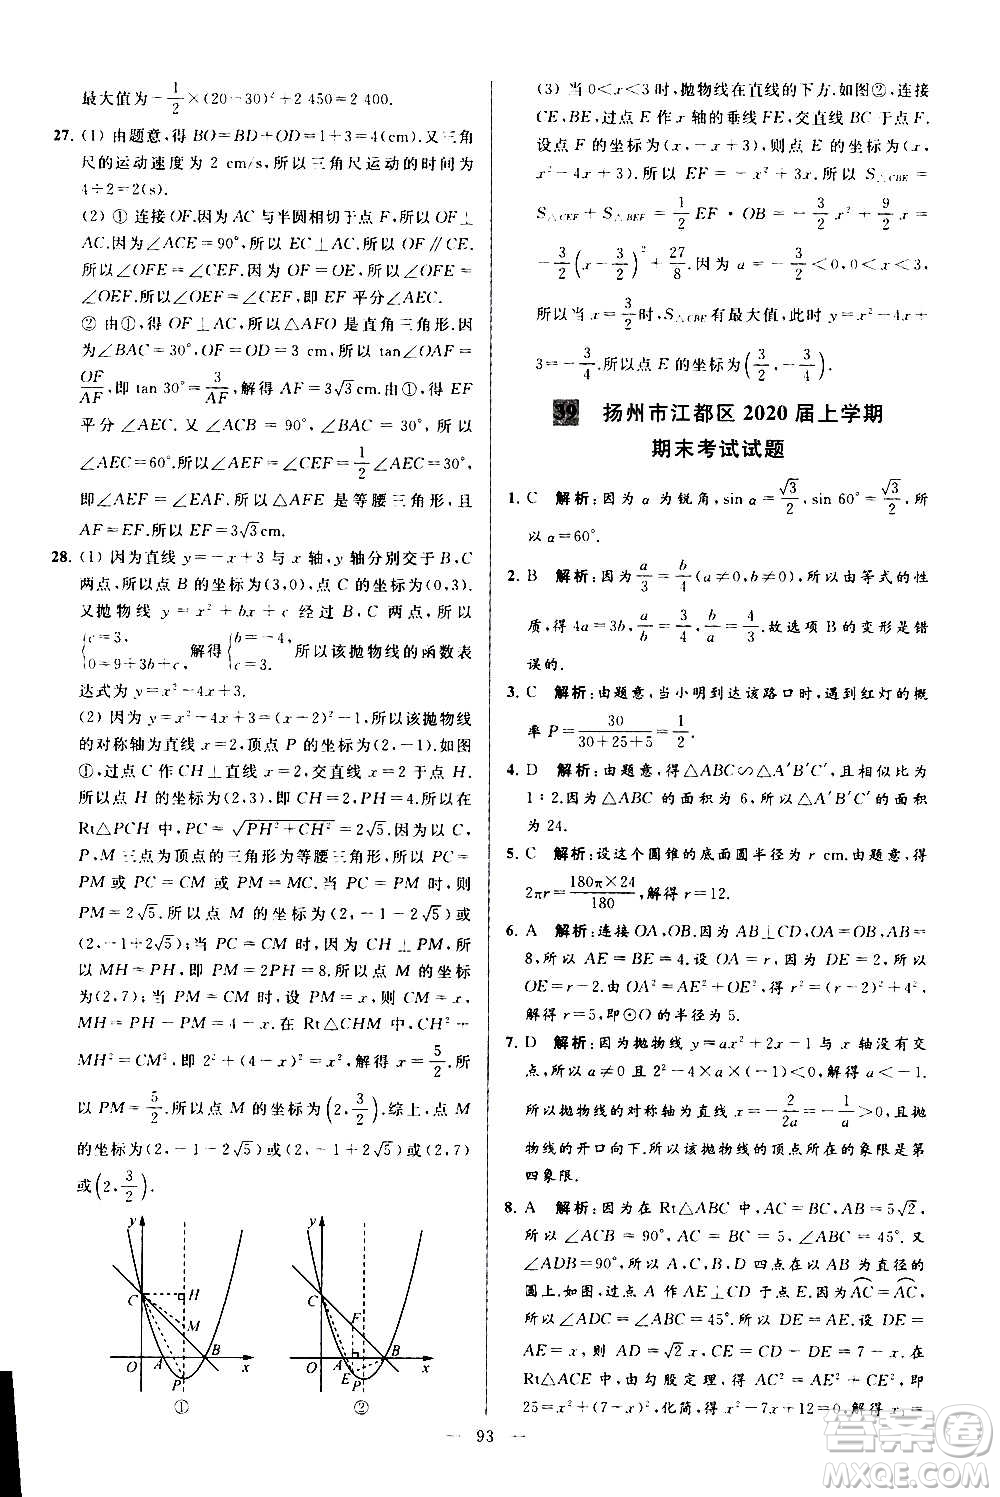 最大值为 −1/2×(20−30)²+2 450=2 400.
27. (1) 由题意,得 BO=BD+OD=1+3=4(cm).又三角
尺的运动速度为 2 cm/s,所以三角尺运动的时间为
4÷2=2(s).
(2) ① 连接 OF.因为 AC 与半圆相切于点 F,所以 OF⊥
AC.因为∠ACE=90°,所以 EC⊥AC.所以 OF∥CE.
所以∠OFE=∠CEF.因为 OF=OE,所以∠OFE=
∠OEF.所以∠OEF=∠CEF,即 EF 平分∠AEC.
② 由①,得 OF⊥AC,所以△AFO 是直角三角形.因
为∠BAC=30°,OF=OD=3cm,所以 tan∠OAF=
OF/AF,即 tan 30°=3/AF,解得 AF=3√3cm.由①,得 EF
平分∠AEC.又∠BAC=30°,∠ACE=90°,所以
∠AEC=60°.所以∠AEF=∠CEF=1/2∠AEC=30°,
即∠AEF=∠EAF.所以△AFE 是等腰三角形,且
AF=EF.所以 EF=3√3cm.
28. (1) 因为直线 y=−x+3 与 x 轴,y 轴分别交于 B,C
两点,所以点 B 的坐标为(3,0),点 C 的坐标为(0,3).
又抛物线 y=x²+bx+c 经过 B,C 两点,所以
{c=3, 0=9+3b+c, 解得{b=−4, c=3. 所以该抛物线的函数表
达式为 y=x²−4x+3.
(2) 因为 y=x²−4x+3=(x−2)²−1,所以该抛物线
的对称轴为直线 x=2,顶点 P 的坐标为(2,−1).如图
①,过点 C 作 CH⊥直线 x=2,交直线 x=2 于点 H.
所以点 H 的坐标为(2,3),即 CH=2,PH=4.所以在
Rt△PCH 中,PC=√(PH²+CH²)=2√5.因为以 C,
P,M 三点为顶点的三角形为等腰三角形,所以 PC=
PM 或 PC=CM 或 PM=MC.当 PC=PM 时,则
PM=2√5.所以点 M 的坐标为(2,−1−2√5)或
(2,−1+2√5);当 PC=CM 时,因为 CH⊥PM,所以
MH=PH,即 PM=2PH=8.所以点 M 的坐标为
(2,7);当 PM=CM 时,设 PM=CM=x,则
MH=PH−PM=4−x.在 Rt△CHM 中,CH²+
MH²=CM²,即 2²+(4−x)²=x²,解得 x=5/2.所
以 PM=5/2.所以点 M 的坐标为(2,3/2).综上,点 M
的坐标为(2,−1−2√5)或(2,−1+2√5)或(2,7)
或(2,3/2).
y C H M O A B x P
①
y C F O A E B x P
②
(3) 当 0<x<3 时,抛物线在直线的下方.如图②,连接
CE,BE,过点 E 作 x 轴的垂线 FE,交直线 BC 于点 F.
设点 F 的坐标为(x,−x+3),则点 E 的坐标为(x,
x²−4x+3).所以 EF=−x²+3x.所以 S△CBE=
S△CEF+S△BEF=1/2EF·OB=−3/2x²+9/2x=
−3/2(x−3/2)²+27/8.因为 a=−3/2<0,0<x<3,
所以当 x=3/2 时,S△CBE 有最大值,此时 y=x²−4x+
3=−3/4.所以点 E 的坐标为(3/2,−3/4).
39 扬州市江都区 2020 届上学期
期末考试试题
1. C 解析:因为 α 为锐角,sin α=√3/2,sin 60°=√3/2,所
以 α=60°.
2. B 解析:因为a/3=b/4(a≠0,b≠0),所以由等式的性
质,得 4a=3b,a/b=3/4,b/a=4/3.故选项 B 的变形是错
误的.
3. C 解析:由题意,当小明到达该路口时,遇到红灯的概
率 P=30/(30+25+5)=1/2.
4. D 解析:由题意,得△ABC∽△A′B′C′,且相似比为
1∶2.因为△ABC 的面积为 6,所以△A′B′C′的面积
为 24.
5. C 解析:设这个圆锥的底面圆半径为 r cm.由题意,得
2πr=180π×24/180,解得 r=12.
6. A 解析:连接 OA,OB.因为 AB⊥CD,OA=OB,AB=
8,所以 AE=BE=4.设 OA=r,因为 DE=2,所以
OE=r−2.由 OA²=AE²+OE²,得 r²=(r−2)²+4²,
解得 r=5,即⊙O 的半径为 5.
7. D 解析:因为抛物线 y=ax²+2x−1 与 x 轴没有交
点,所以 a≠0 且 2²−4a×(−1)<0,解得 a<−1.
所以抛物线的对称轴为直线 x=−2/2a=−1/a>0,抛
物线的开口向下.所以该抛物线的顶点所在的象限是第
四象限.
8. A 解析:因为在 Rt△ABC 中,AC=BC,AB=5√2,
所以∠ACB=90°,AC=BC=5,∠ABC=45°.又
∠ADB=90°,所以 A,C,B,D 四点在以 AB 为直径的
圆上.如图,过点 A 作 AE⊥CD 于点 E.因为AC=AC,
所以∠ADC=∠ABC=45°.所以 DE=AE.设 DE=
AE=x,则 AD=√2x,CE=CD−DE=7−x.在
Rt△ACE 中,由勾股定理,得 AC²=AE²+CE²,即
25=x²+(7−x)²,化简,得 x²−7x+12=0,解得 x₁=
— 93 —
答案圈
MXQE.COM